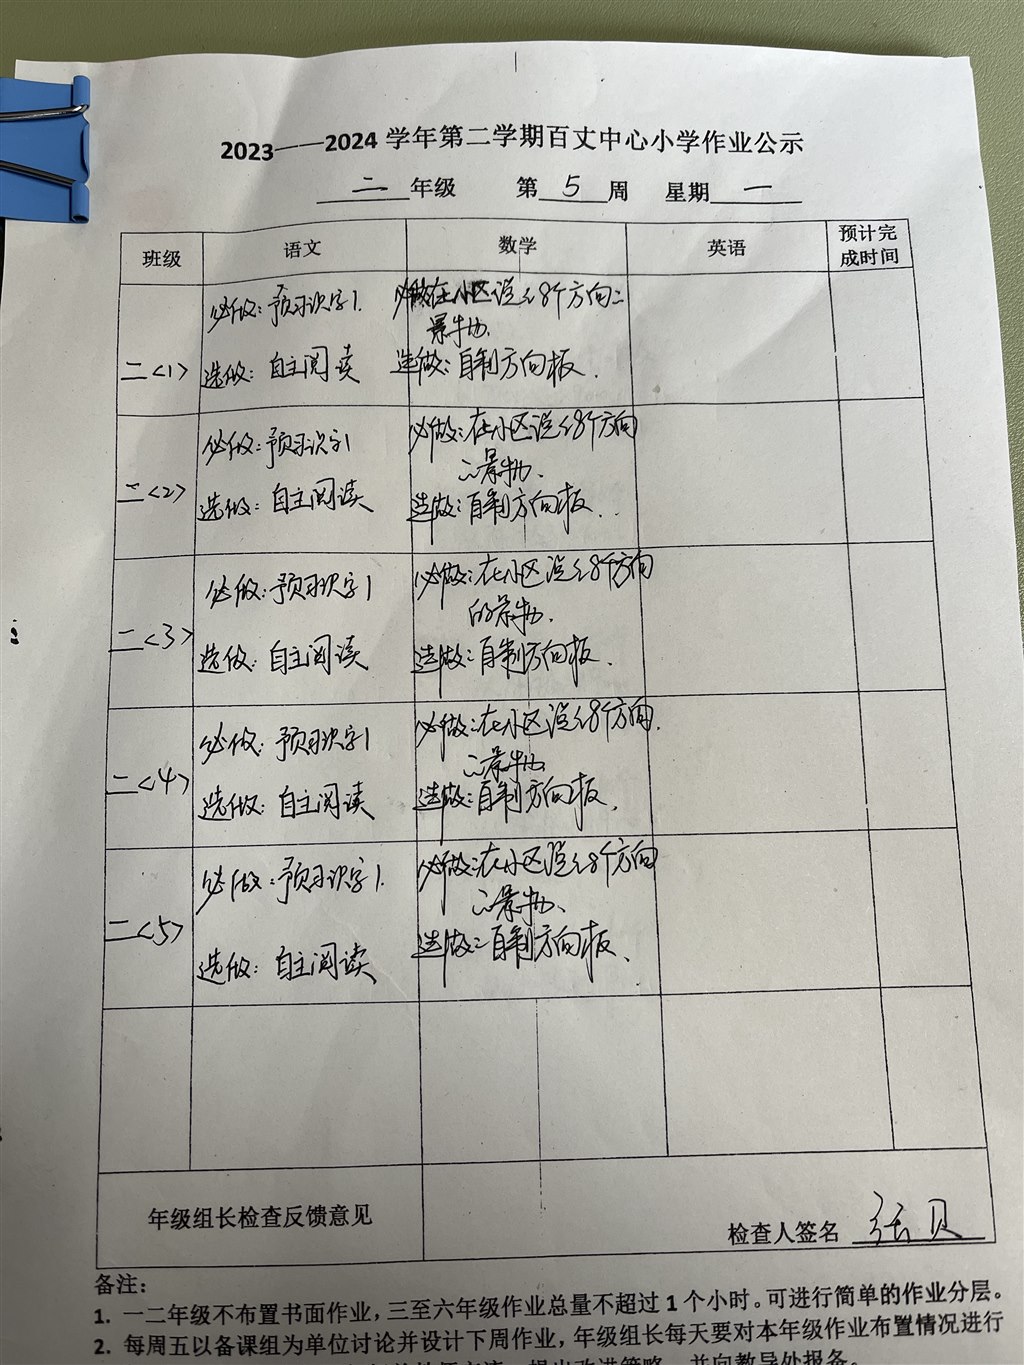 2023——2024 学年第二学期百丈中心小学作业公示
二 年级 第 5 周 星期 一
班级 语文 数学 英语 预计完成时间
二<1>
必做：预习识字1.
选做：自主阅读
必做在小区说说8个方向的
景物.
选做：自制方向板.
二<2>
必做：预习识字1
选做：自主阅读
必做：在小区说说8个方向
的景物.
选做：自制方向板..
二<3>
必做：预习识字1
选做：自主阅读
必做：在小区说说8个方向
的景物.
选做：自制方向板.
二<4>
必做：预习识字1
选做：自主阅读
必做：在小区说说8个方向.
的景物
选做：自制方向板.
二<5>
必做：预习识字1.
选做：自主阅读
必做：在小区说说8个方向
的景物、
选做：自制方向板、
年级组长检查反馈意见
检查人签名 张贝
备注：
1. 一二年级不布置书面作业，三至六年级作业总量不超过 1 个小时。可进行简单的作业分层。
2. 每周五以备课组为单位讨论并设计下周作业，年级组长每天要对本年级作业布置情况进行
提出改进策略，并向教导处报备。